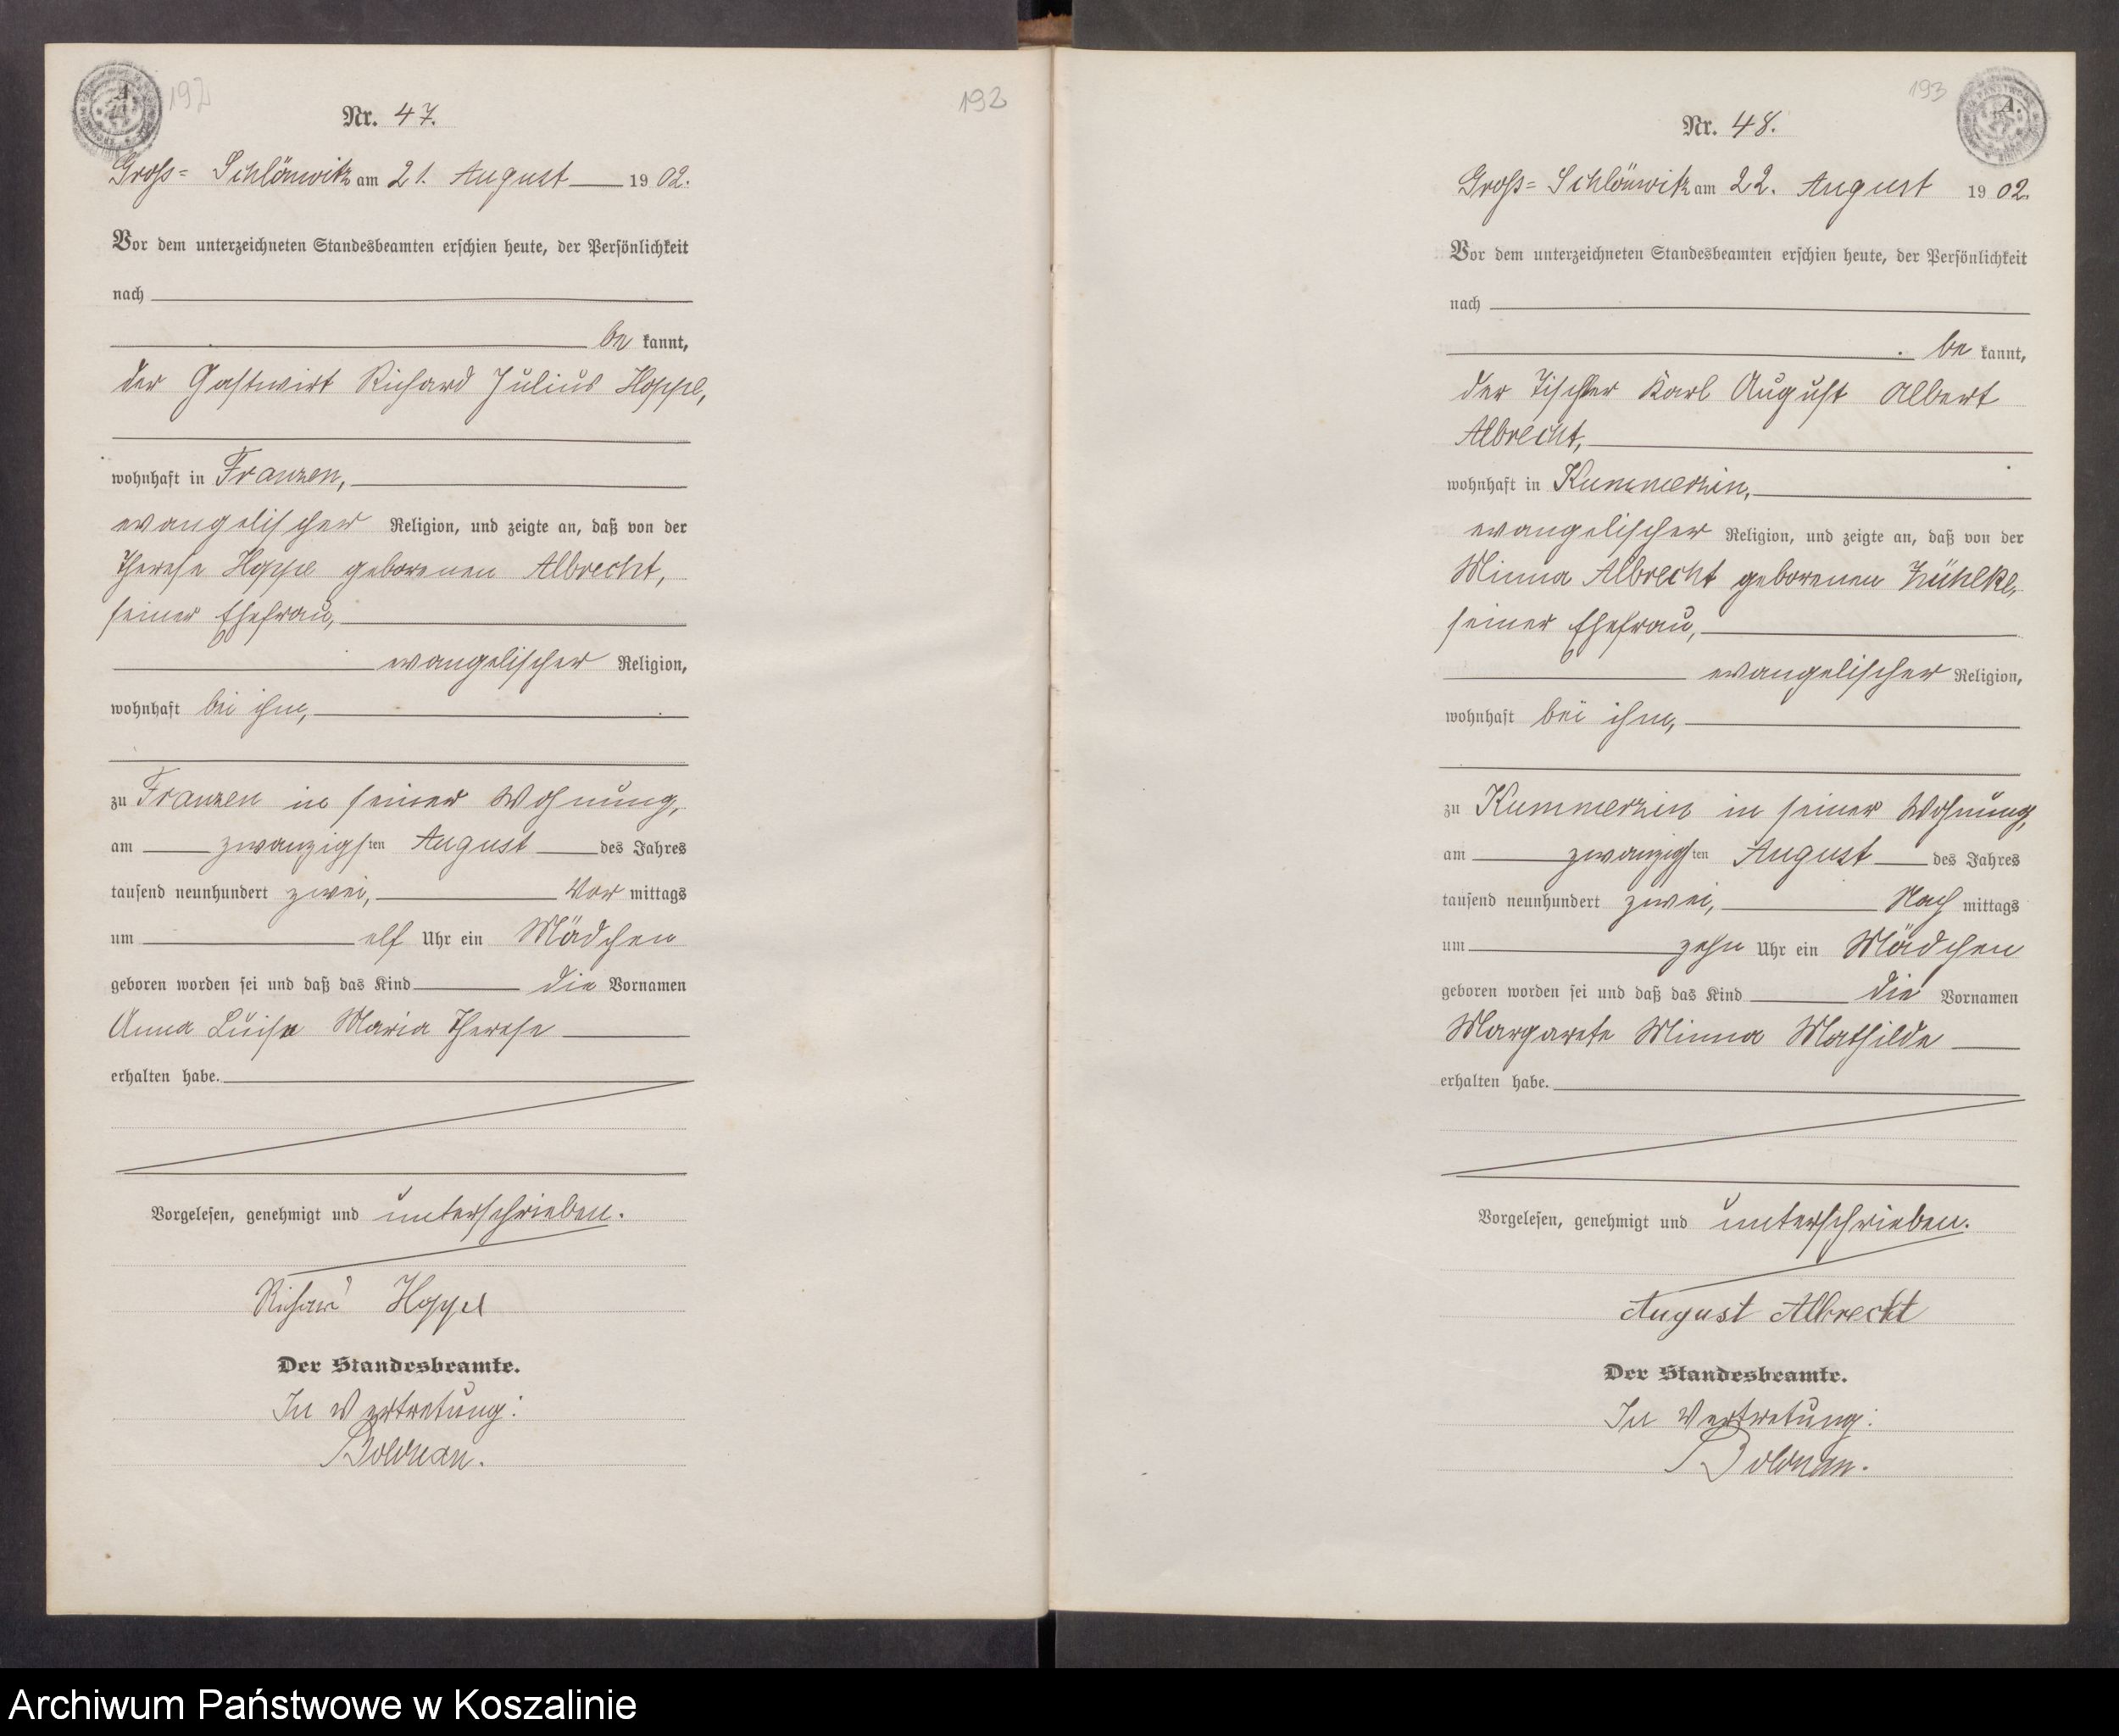 192
Nr. 47.
Groß= Schlönwitz am 21. August 1902.
Vor dem unterzeichneten Standesbeamten erschien heute, der Persönlichkeit
nach
be kannt,
der Gastwirt Richard Julius Hoppe,
wohnhaft in Franzen,
evangelischer Religion, und zeigte an, daß von der
Therese Hoppe geborenen Albrecht,
seiner Ehefrau,
evangelischer Religion,
wohnhaft bei ihm,
zu Franzen in seiner Wohnung,
am zwanzigsten August des Jahres
tausend neunhundert zwei, Vor mittags
um elf Uhr ein Mädchen
geboren worden sei und daß das Kind die Vornamen
Anna Luise Maria Therese
erhalten habe.
Vorgelesen, genehmigt und unterschrieben.
Richard Hoppe
Der Standesbeamte.
In Vertretung:
192
193
Nr. 48.
Groß= Schlönwitz am 22. August 1902.
Vor dem unterzeichneten Standesbeamten erschien heute, der Persönlichkeit
nach
be kannt,
der Tischler Karl August Albert
Albrecht,
wohnhaft in Kummerzin,
evangelischer Religion, und zeigte an, daß von der
Minna Albrecht geborenen Zühlke,
seiner Ehefrau,
evangelischer Religion,
wohnhaft bei ihm,
zu Kummerzin in seiner Wohnung,
am zwanzigsten August des Jahres
tausend neunhundert zwei, Nach mittags
um zehn Uhr ein Mädchen
geboren worden sei und daß das Kind die Vornamen
Margarete Minna Mathilde
erhalten habe.
Vorgelesen, genehmigt und unterschrieben.
August Albrecht
Der Standesbeamte.
In Vertretung:
Archiwum Państwowe w Koszalinie